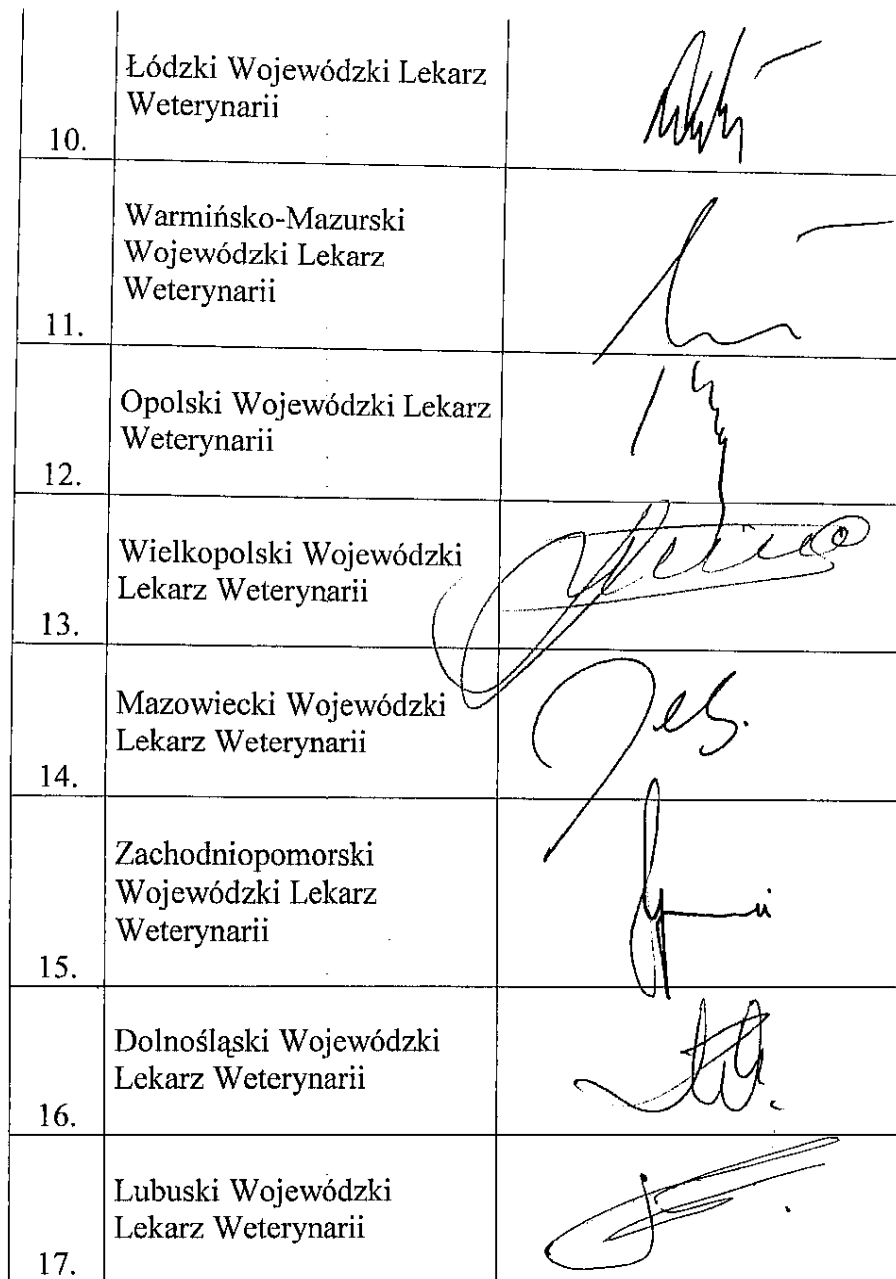 Łódzki Wojewódzki Lekarz
Weterynarii
10.
Warmińsko-Mazurski
Wojewódzki Lekarz
Weterynarii
11.
Opolski Wojewódzki Lekarz
Weterynarii
12.
Wielkopolski Wojewódzki
Lekarz Weterynarii
13.
Mazowiecki Wojewódzki
Lekarz Weterynarii
14.
Zachodniopomorski
Wojewódzki Lekarz
Weterynarii
15.
Dolnośląski Wojewódzki
Lekarz Weterynarii
16.
Lubuski Wojewódzki
Lekarz Weterynarii
17.